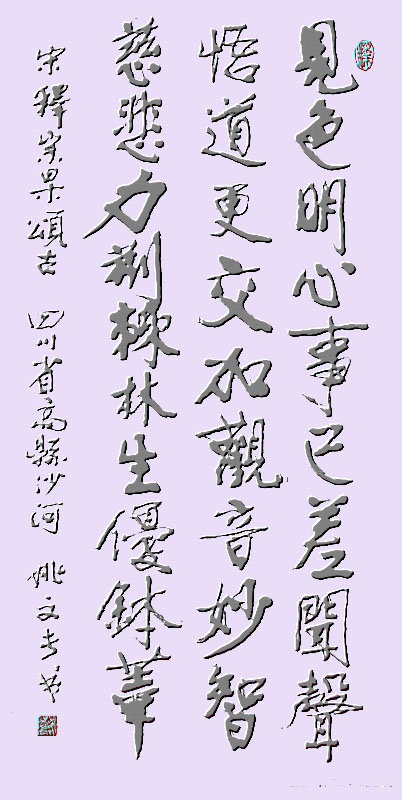 見色明心事已差聞聲
悟道更交加觀音妙智
慈悲力荊棘林生優鉢華
宋釋崇杲頌古 四川省高縣沙河 姚文考书